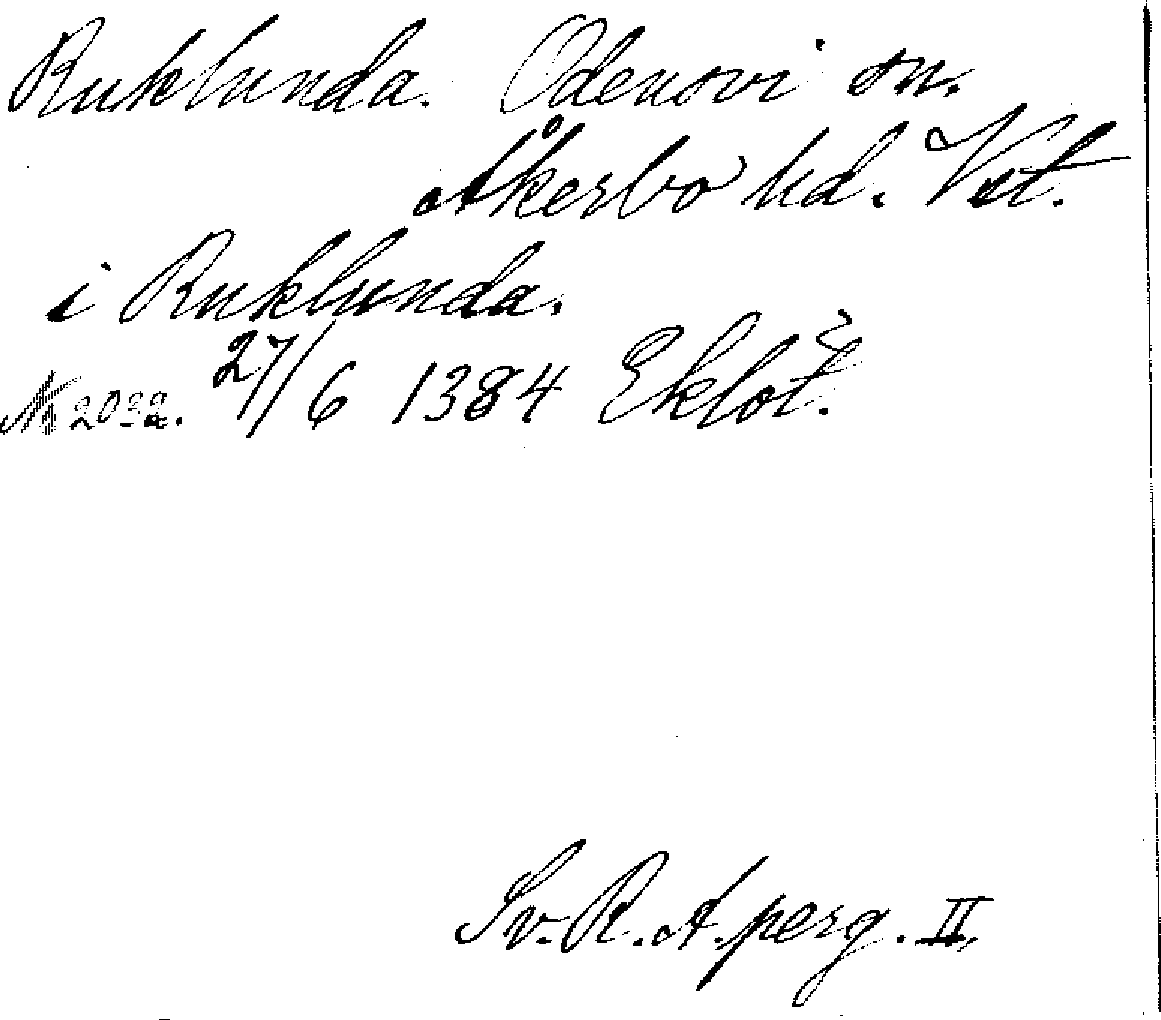 Ruklunda. Odensvi sn.
Åkerbo hd. Vst.
i Ruklunda.
Nr 2032. 27/6 1384 Eklöt.
Sv. R. A. perg. II